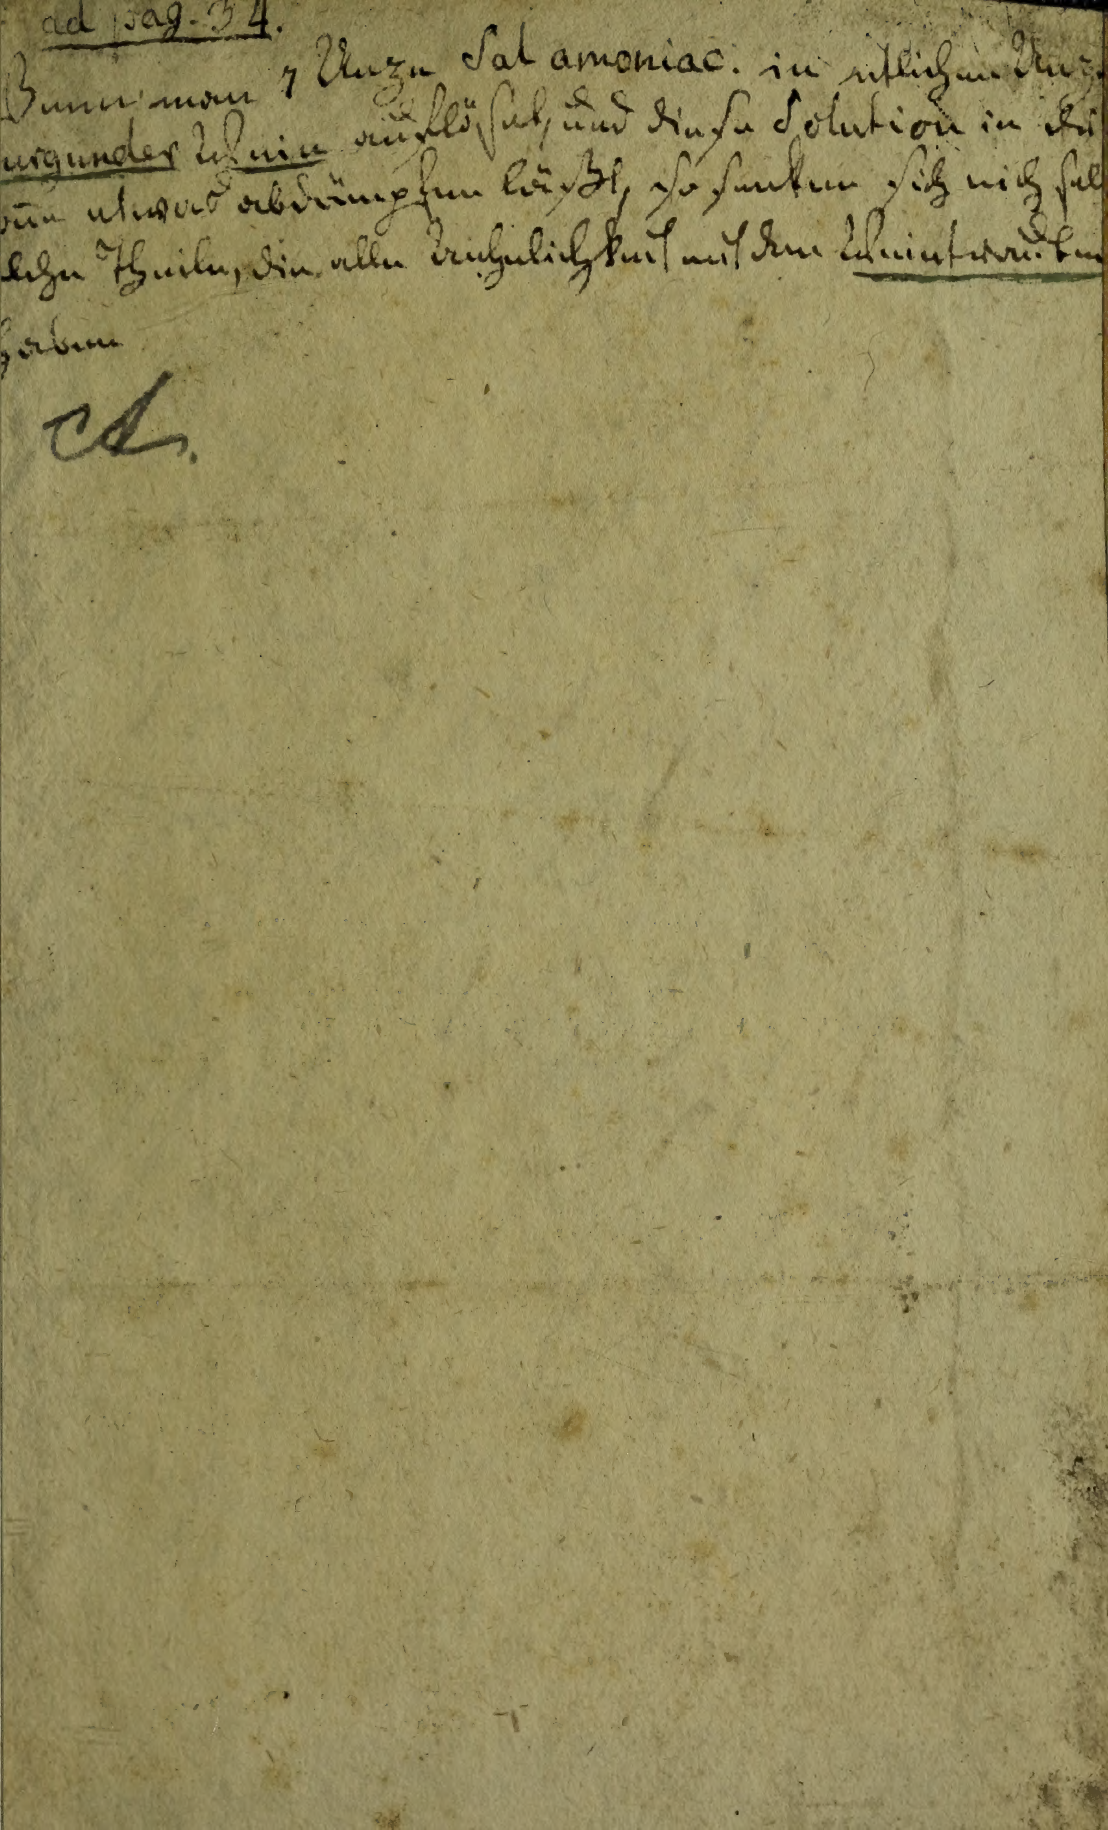 ad pag. 34.
Wenn man 1 Unze Sal amoniac. in etlichen Unz
urgunder Wein auflöset, und diese Solution in
etwas abdämpfen läßt, so senken sich
lche Theile, die alle Aehnlichkeit mit den Weintrauben
haben
A.